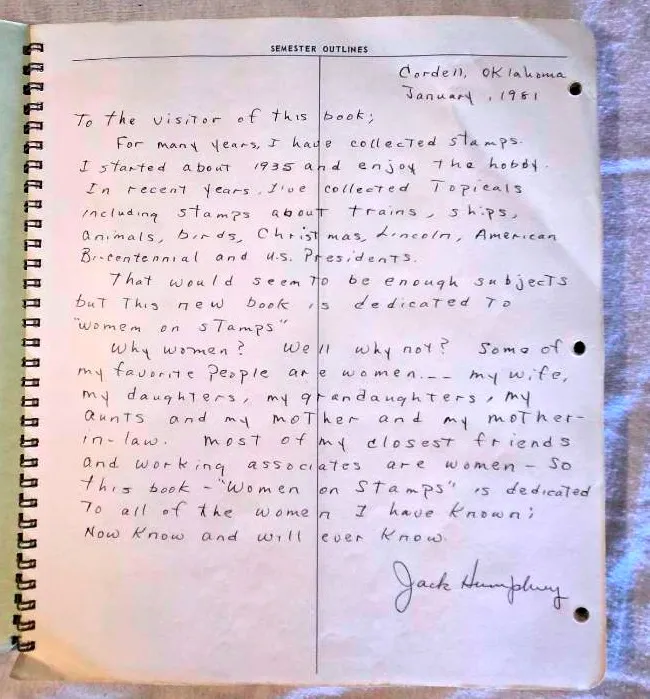 SEMESTER OUTLINES
Cordell, Oklahoma
January, 1981
To the visitor of this book;
For many years, I have collected stamps.
I started about 1935 and enjoy the hobby.
In recent years, I've collected Topicals
including stamps about trains, ships,
animals, birds, Christmas, Lincoln, American
Bicentennial and U.S. Presidents.
That would seem to be enough subjects
but this new book is dedicated to
"women on stamps"
Why women? Well why not? Some of
my favorite people are women... my wife,
my daughters, my grandaughters, my
aunts and my mother and my mother-
in-law. Most of my closest friends
and working associates are women - so
this book - "Women on Stamps" is dedicated
to all of the women I have known;
now know and will ever know.
Jack Humphrey